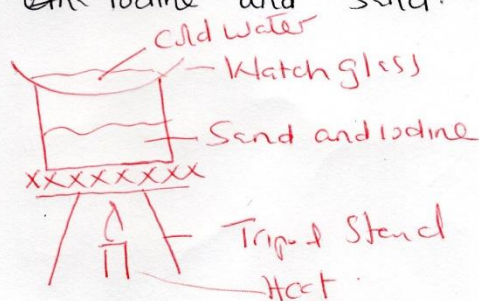 iodine and sand.
Cold water
Watch glass
Sand and iodine
Tripod Stand
Heat